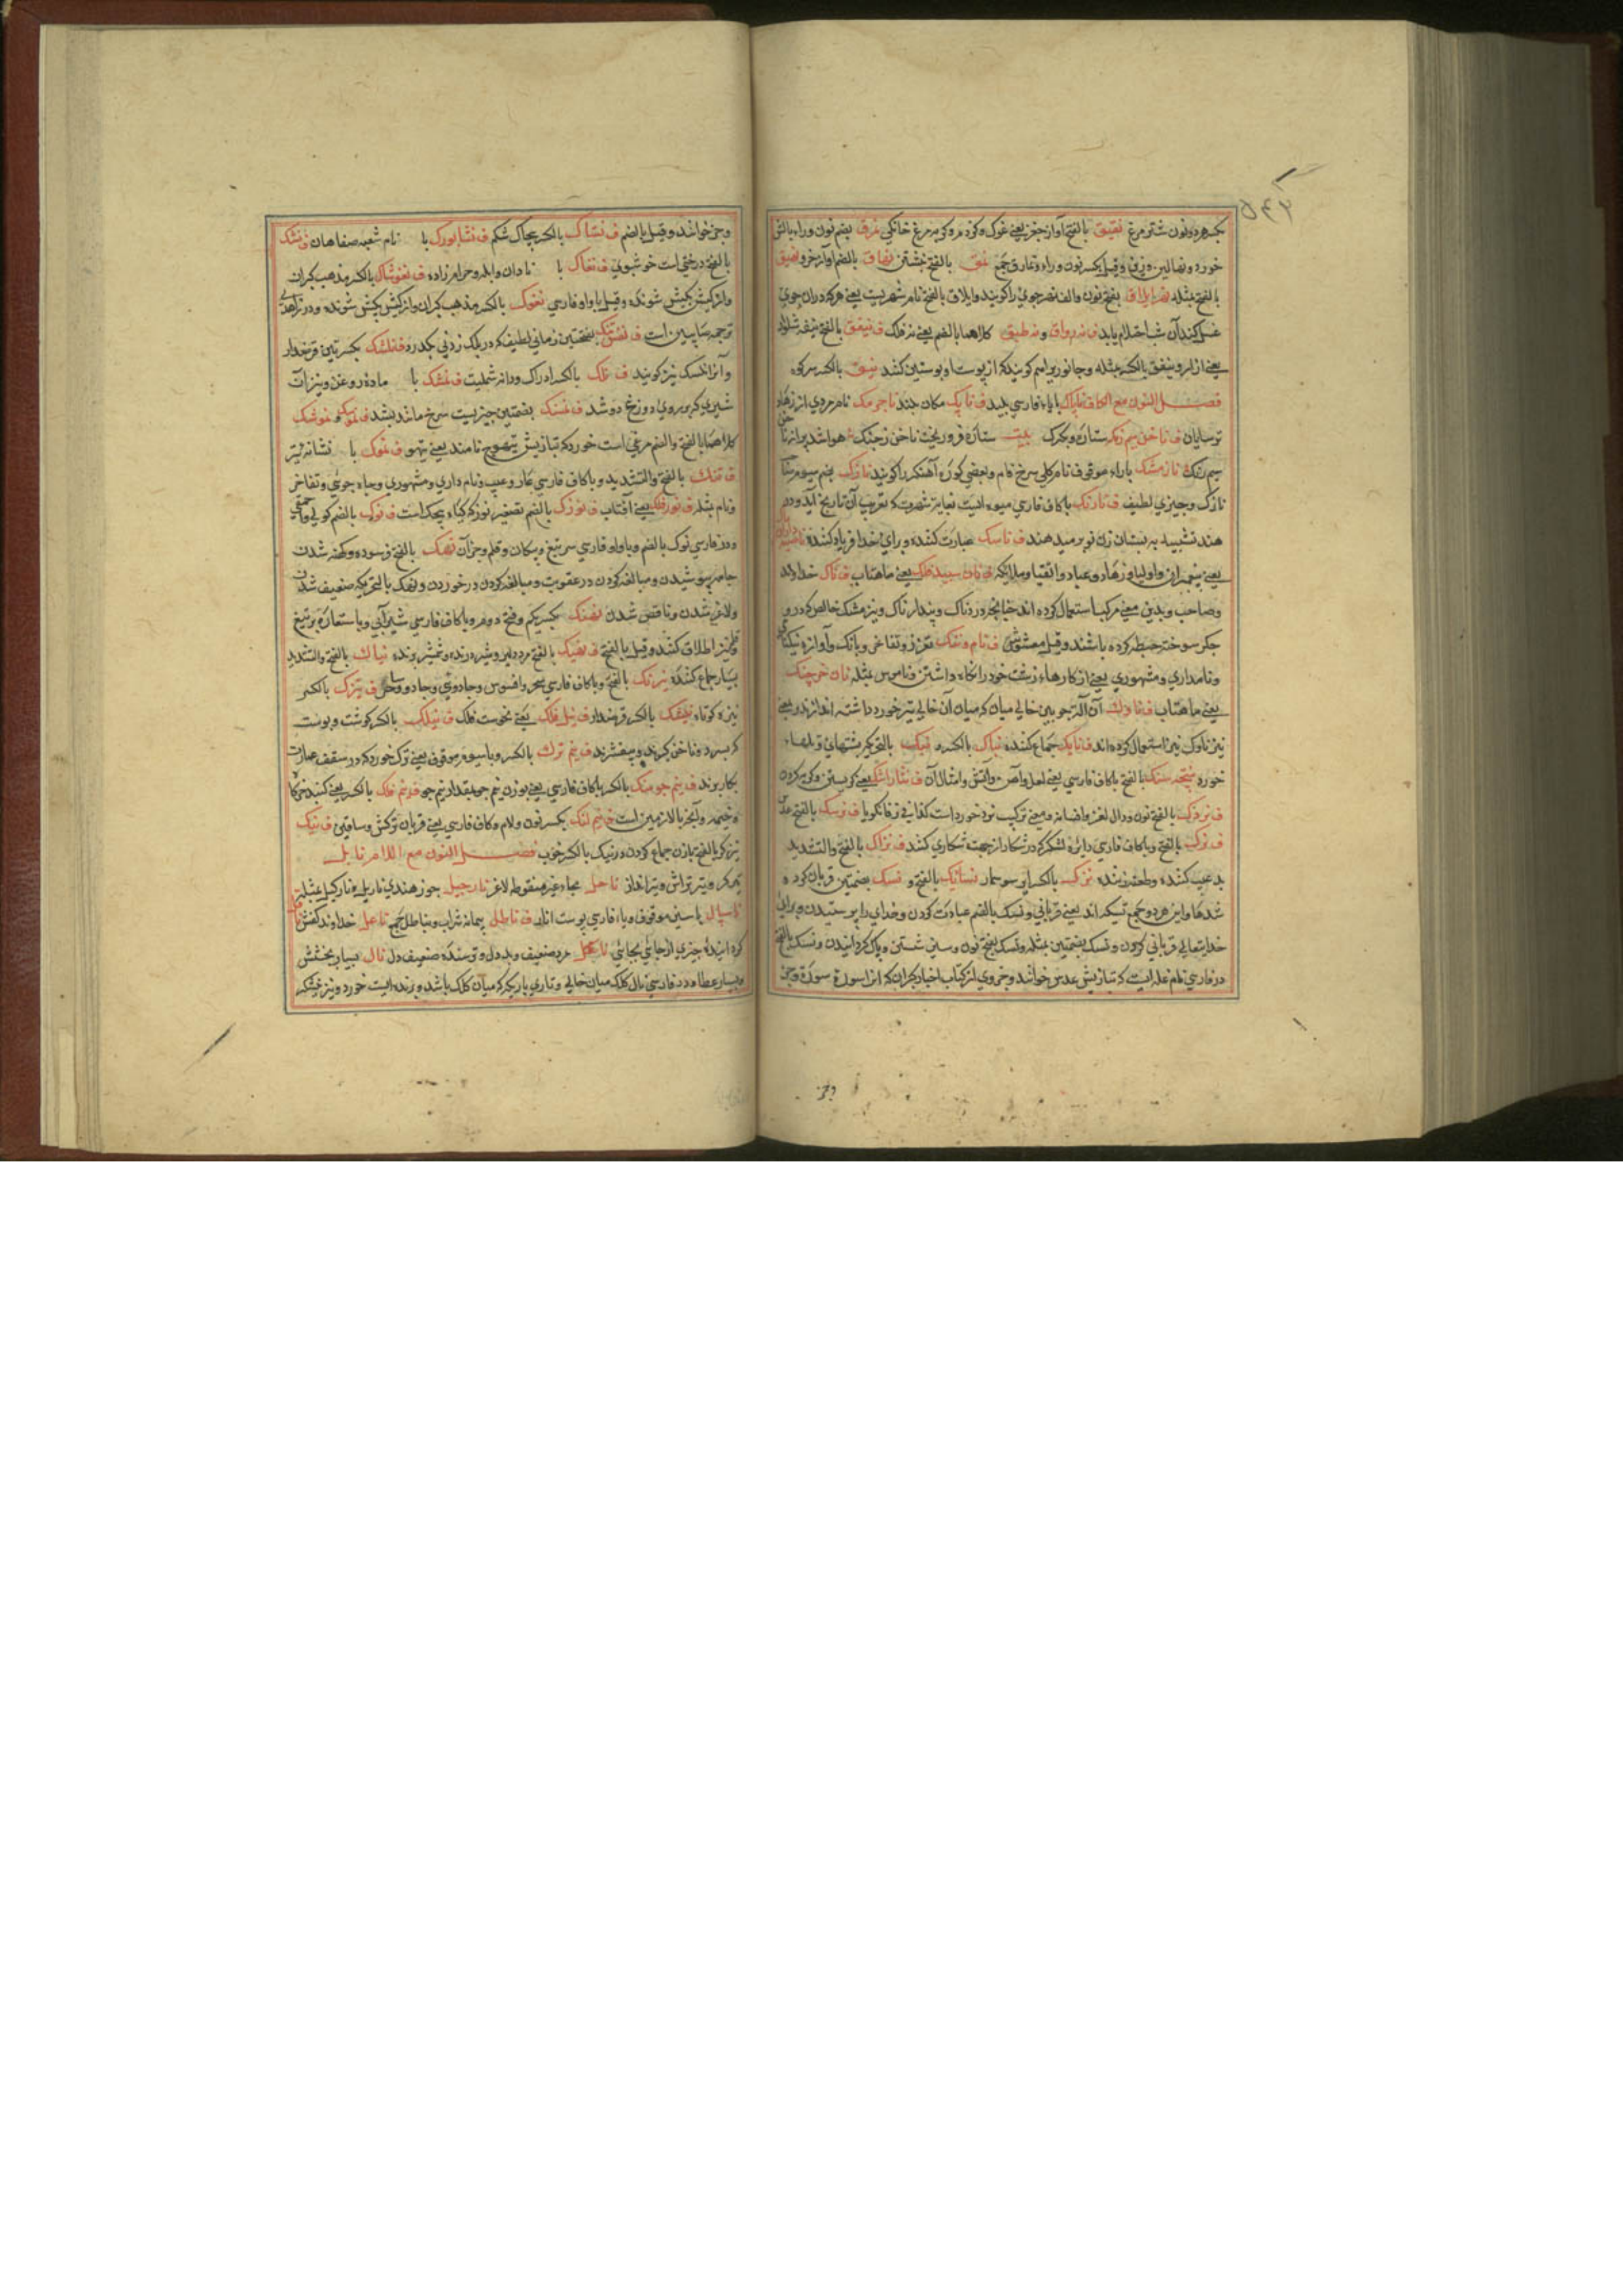 بکسر هر دو نون شتر مرغ نقیق بالفتح آواز چغز یعنے غوک و کژدم و کربه و مرغ خانگی نمرق بضم نون وراء بالش
خورد و نهالین و قیل بکسر نون وراء و نمارق جمع نمق بالفتح نبشتن نهاق بالضم آواز خر و نهیق
بالفتح مثله بفتح نون والف نهر جوی را گویند و ایلاق بالفتح نام شهریست یعنے هرکه در ان جوی
غسل کند آن شب احتلام یابد ف نه رواق و نه طبق کلاهما بالضم یعنے نه فلک ف نیفق بالفتح نیفه شلوار
یعنے ازار و نیفق بالکسر مثله و جانوریرا هم گویند که از پوست او پوستین کنند نیق بالکسر سر کوه
فصل النون مع الکاف ناپاک باباء فارسی پلید ف مکان چند نام مردی از زهاد
ترسایان ف ناخن ستاره و بیت ستاره فرو ریخت ناخن ز چنگ هوا شد پر از
سیم رنگ باراء موقوف نام گلی سرخ فام و بعضی کوزه آهنگر را گویند نازک بضم سیوم
نازک و چیزی لطیف ف نارنگ باکاف فارسی میوه ایست بغایت شهرت که بتعریب آن نارنج آید و درم
هند تشبیه به پستان زن نوبر میدهند ف ناسک عبادت کننده و برای خدا قربان کننده
یعنے پیغمبران و اولیا و زهاد و عباد و اتقیا و ملایکه ف نان سپید فلک یعنے ماهتاب ف ناک خداوند
و صاحب و بدین معنے مرکب استعمال کرده اند چنانچه دردناک و پندارناک و نیز مشک خالص که درو
جگر سوخته خبطه کرده باشند و قیل مغشوش ف نام و ننگ تعزز و تفاخر و بانگ و آوازه نیکنامی
و نامداری و مشهوری یعنے از کارهاء زشت خود را نگاه داشتن و ناموس مثله نان
یعنے ماهتاب ف ناوک آن آله چوبین خالی میان که میان آن خالی تیر خورد داشته اندازند و بمعنے
تیر ناوک نیز استعمال کرده اند ف نایک جماع کننده نباک بالکسر و نبک بالتحریک پشتهای و تلهاء
خورد نتیجه سنگ بالفتح باکاف فارسی یعنے لعل و آهن و آتش و امثال آن ف نثار اشک یعنے گریستن و گریه کردن
ف نردک بالفتح نون و دال لغز و افسانه و بمعنے ترکیب نرد خورد است کذا فی زفانگویا ف نرسک بالفتح عدس
ف نرگ بالفتح و باکاف فارسی دایره لشکر که در شکار از جهت شکاری کنند ف نزاک بالفتح والتشدید
بد عیب کننده و طعنه زننده نزک بالکسر ایر سوسمار نسائک بالفتح و نسک بضمتین قربان کرده
شدها و این هر دو جمع نسیکه اند یعنے قربانی و نسک بالضم عبادت کردن و خدای را پرستیدن و برای
خدایتعالی قربانی کردن و نسک بضمتین مثله و نسک بفتح نون و سین شستن و پاک گردانیدن و نسک بالفتح
در فارسی نام غله ایست که بتازیش عدس خوانند و جزوی از کتاب اخبار گبران که انرا سوره سوره و جز
وجز
وجز خوانند و قیل بالضم ف نشاک بالکسر چاک شکم ف نشابورک با نام شعبه صفاهان ف نشک
بالفتح درختی است خوشبوی ف نغاک با نادان و ابله و حرامزاده ف نغوشاک بالکسر مذهب گبران
و از کیش بکیش شونده و قیل با واو فارسی نغوک بالکسر مذهب گبران و از کیش بکیش شونده و در
ترجمه صابیین است ف بفتحتین زمانی لطیف که در پلک زدنی بگذرد ف نلشک بکسرتین قرغدار
و آنرا نلسک نیز گویند ف نلک بالکسر ادراک و دانه شملیت ف نمشک با ماده روغن و نیز آن
شیری که بر روی دوغ دوشد ف نمنک بضمتین چیزیست سرخ مانند بشد ف و نموشک
کلاهما بالفتح والضم مرغی است خورد که بتازیش تیهوج نامند یعنے تیهو ف نموک با نشانه تیر
ف ننگ بالفتح والتشدید و باکاف فارسی عار و عیب و نام داری و مشهوری و جاه جوئی و تفاخر
و نام مثله ف نور فلک یعنے آفتاب ف نوزک بالضم تصغیر نوز که گیاه بچک است ف نوک بالضم گولی و احمقی
و در فارسی نوک بالضم و باواو فارسی سر تیغ و پیکان و قلم و جز آن نهک بالفتح فرسوده و کهنه شدن
جامه پوشیدن و مبالغه کردن در عقوبت و مبالغه کردن در خوردن و نهک بالتحریک ضعیف شدن
و لاغر شدن و ناقص شدن نهنگ بکسر یکم و فتح دوم و باکاف فارسی شیر آبی و باستعاره بر تیغ
و قلم نیز اطلاق کنند و قیل بالفتح ف نهیک بالفتح مرد دلیر و شیر درنده و شمشیر برنده نیاک بالفتح والتشدید
بسیار جماع کننده نیرنگ بالفتح و باکاف فارسی سحر و افسوس و جادوی و جادو و ساحر ف نیزک بالکسر
نیزه کوتاه نیشک بالکسر قرغدار ف نیل فلک یعنے نحوست فلک ف نیلک بالکسر گوشت و پوست
که بسر دو ناخن گیرند و بیفشرند ف نیم ترک بالکسر و باسیوم موقوف یعنے ترک خورد که در سقف عمارت
بکار برند ف نیم جو سنگ بالکسر باکاف فارسی یعنے بوزن نیم جو بمقدار نیم جو ف نیم فلک بالکسر یعنے گنبد خرگاه
و خیمه و آنچه بالا زمین است ف نیم لنگ بکسر نون و لام و کاف فارسی یعنے قربان ترکش و ساقین ف نیک
نیزه گر بالفتح بازن جماع کردن و نیک بالکسر خوب فصل النون مع اللام نابل
تیرگر و تیر تراش و تیرانداز ناحل بحاء غیر منقوطه لاغر نارجیل جوز هندی ناریل و نارگیل مثله
ناسپال باسین موقوف و باء فارسی پوست انار ف ناطل پیمانه شراب و نیاطل جمع ناعل خداوند کفش
گردانیده چیزی از جای بجایی ناکل مرد ضعیف و بد دل و ترسنده ضعیف دل نال بسیار بخشش
و بسیار عطا و در فارسی نال کلک میان خالی و تاری باریک که میان کلک باشد و پرنده ایست خورد و نیز نیشکر